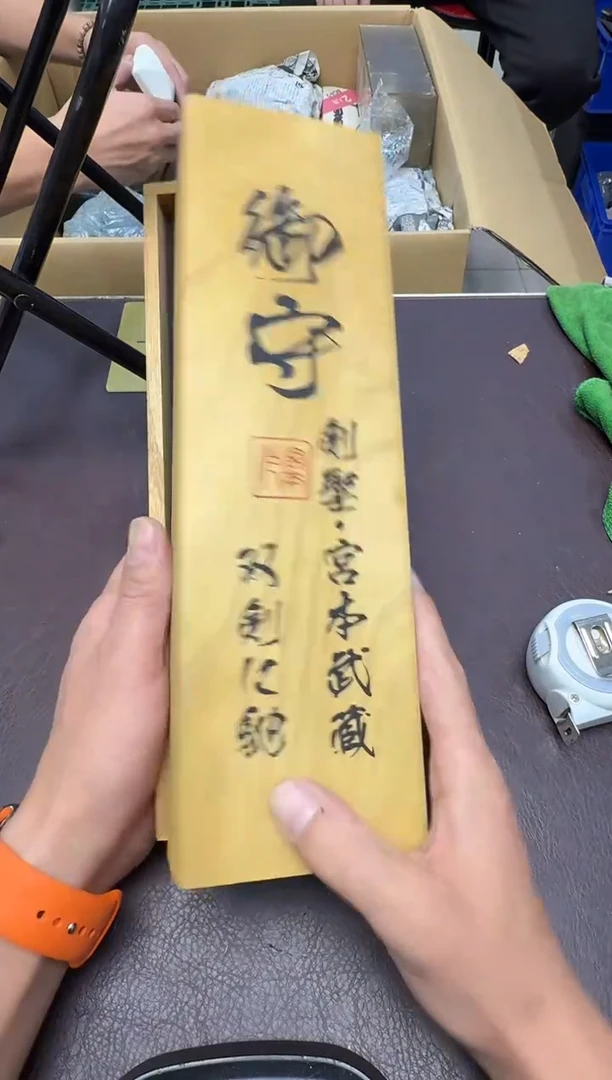 御守
剣聖・宮本武蔵
双剣に